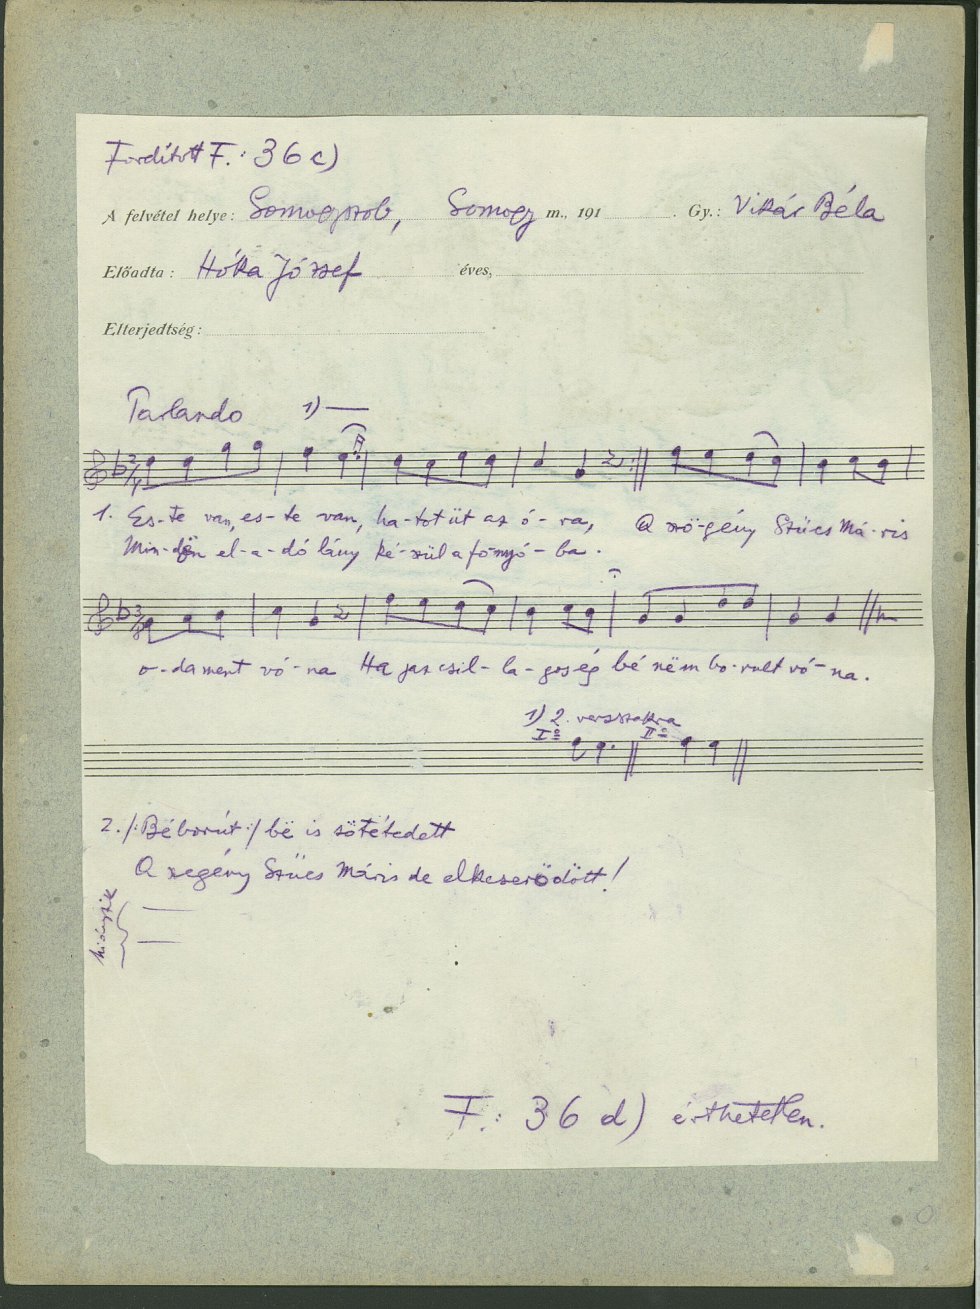 Fordított F.: 36 c)
A felvétel helye: Somogyszob, Somogy m., 191 . Gy.: Vikár Béla
Előadta: Hóka József éves,
Elterjedtség:
Parlando 1) —
1. Es-te van, es-te van, ha-tot üt az ó-ra, A szö-gény Szücs Má-ris
Min-dön el-a-dó lány ké-szül a fonyó-ba.
o-da ment vó-na Ha jaz csil-la-gos ég bé nëm bo-rult vó-na.
1) 2. versszakra
Iº IIº
2. /:Béborút:/ bë is sötétedett
A szegény Szücs Máris de elkeserödött!
hiányzik
F.: 36 d) érthetetlen.